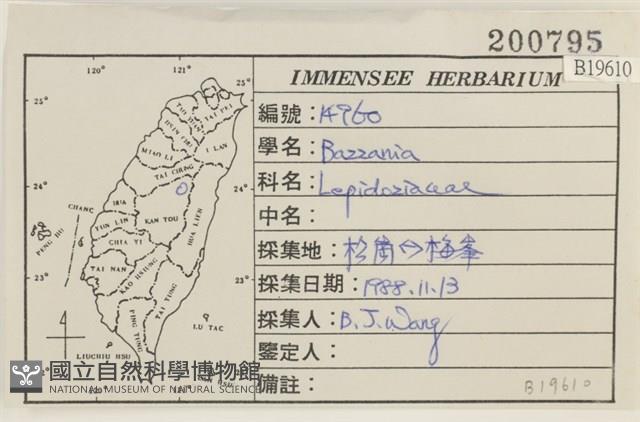 200795
B19610
IMMENSEE HERBARIUM
編號：14960
學名：Bazzania
科名：Lepidoziaceae
中名：
採集地：松崗⇔梅峯
採集日期：1988.11.13
採集人：B.J.Wang
鑒定人：
備註：
B19610
120°
121°
25°
25°
TAI PEI
HSIN CHU
I LAN
MIAO LI
TAI CHUNG
24°
24°
CHANG
HUA
NAN TOU
HUA LIEN
YUN LIN
PENG HU
CHIA YI
23°
23°
TAI NAN
KAO HSIUNG
TAI TUNG
PING TUNG
LIUCHIU HSU
120°
121°
國立自然科學博物館
NATIONAL MUSEUM OF NATURAL SCIENCE